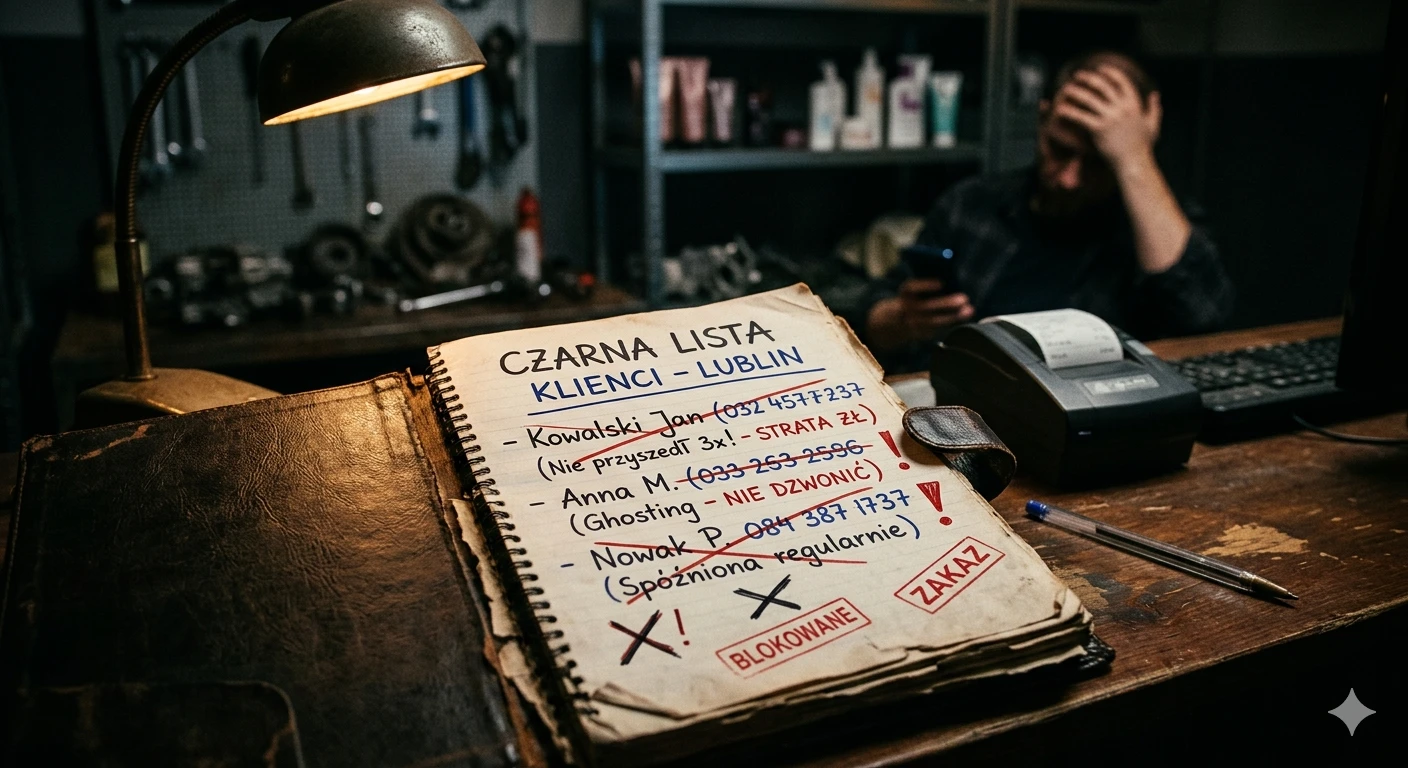 CZARNA LISTA
KLIENCI - LUBLIN
- Kowalski Jan (032 4577237
(Nie przyszedł 3x! - STRATA ZŁ)
- Anna M. (033 263 2596
(Ghosting - NIE DZWONIĆ) !
- Nowak P. 084 387 1737 !
(Spóźniona regularnie)
X! X
BLOKOWANE
ZAKAZ